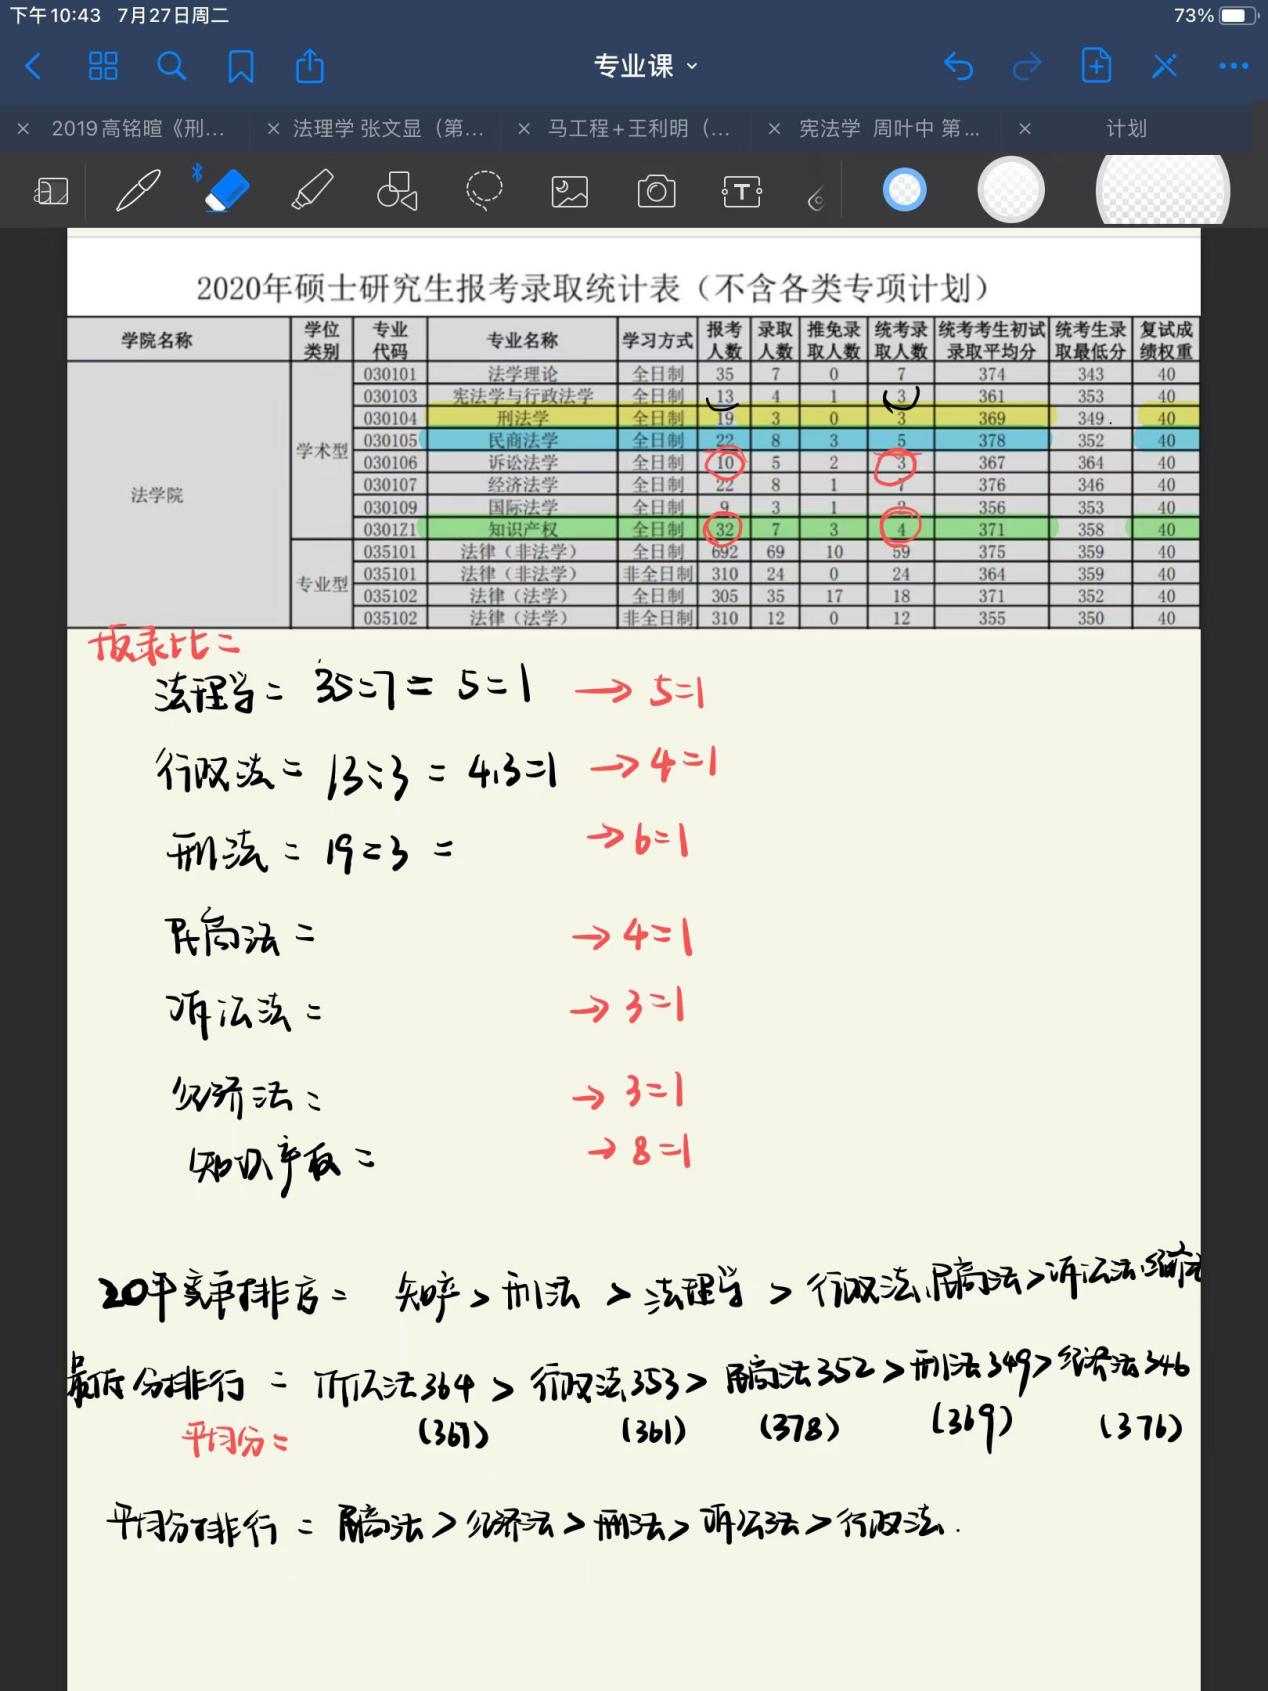 下午10:43 7月27日周二 73%
专业课
× 2019高铭暄《刑... × 法理学 张文显（第... × 马工程+王利明（... × 宪法学 周叶中 第... × 计划
2020年硕士研究生报考录取统计表（不含各类专项计划）
学院名称 学位类别 专业代码 专业名称 学习方式 报考人数 录取人数 推免录取人数 统考录取人数 统考考生初试录取平均分 统考生录取最低分 复试成绩权重
法学院 学术型 030101 法学理论 全日制 35 7 0 7 374 343 40
030103 宪法学与行政法学 全日制 13 4 1 3 361 353 40
030104 刑法学 全日制 19 3 0 3 369 349 40
030105 民商法学 全日制 22 8 3 5 378 352 40
030106 诉讼法学 全日制 10 5 2 3 367 364 40
030107 经济法学 全日制 22 8 1 7 376 346 40
030109 国际法学 全日制 9 3 1 2 356 353 40
0301Z1 知识产权 全日制 32 7 3 4 371 358 40
专业型 035101 法律（非法学） 全日制 692 69 10 59 375 359 40
035101 法律（非法学） 非全日制 310 24 0 24 364 359 40
035102 法律（法学） 全日制 305 35 17 18 371 352 40
035102 法律（法学） 非全日制 310 12 0 12 355 350 40
报录比：
法理学： 35:7 = 5:1 → 5:1
行政法： 13:3 = 4.3:1 → 4:1
刑法：19:3 = → 6:1
民商法： → 4:1
诉讼法： → 3:1
经济法： → 3:1
知识产权： → 8:1
20年竞争排序： 知产 > 刑法 > 法理学 > 行政法、民商法 > 诉讼法、经济法
最低分排行： 诉讼法364 > 行政法353 > 民商法352 > 刑法349 > 经济法346
平均分： (367) (361) (378) (369) (376)
平均分排行： 民商法 > 经济法 > 刑法 > 诉讼法 > 行政法.